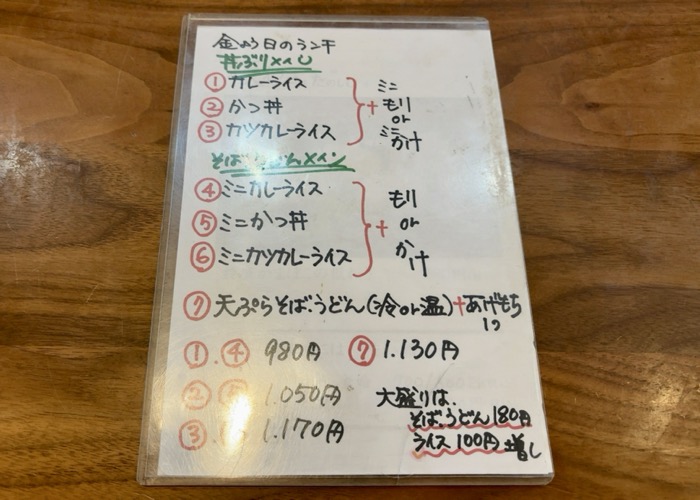 金よう日のランチ
丼ぶりメイン
① カレーライス
② かつ丼
③ カツカレーライス
+ ミニもり or ミニかけ
そば、うどんメイン
④ ミニカレーライス
⑤ ミニかつ丼
⑥ ミニカツカレーライス
+ もり or かけ
⑦ 天ぷらそば、うどん(冷or温)+あげもち1つ
①.④ 980円 ⑦ 1.130円
②.⑤ 1.050円
③. 1.170円
大盛りは、
そば、うどん180円
ライス100円増し